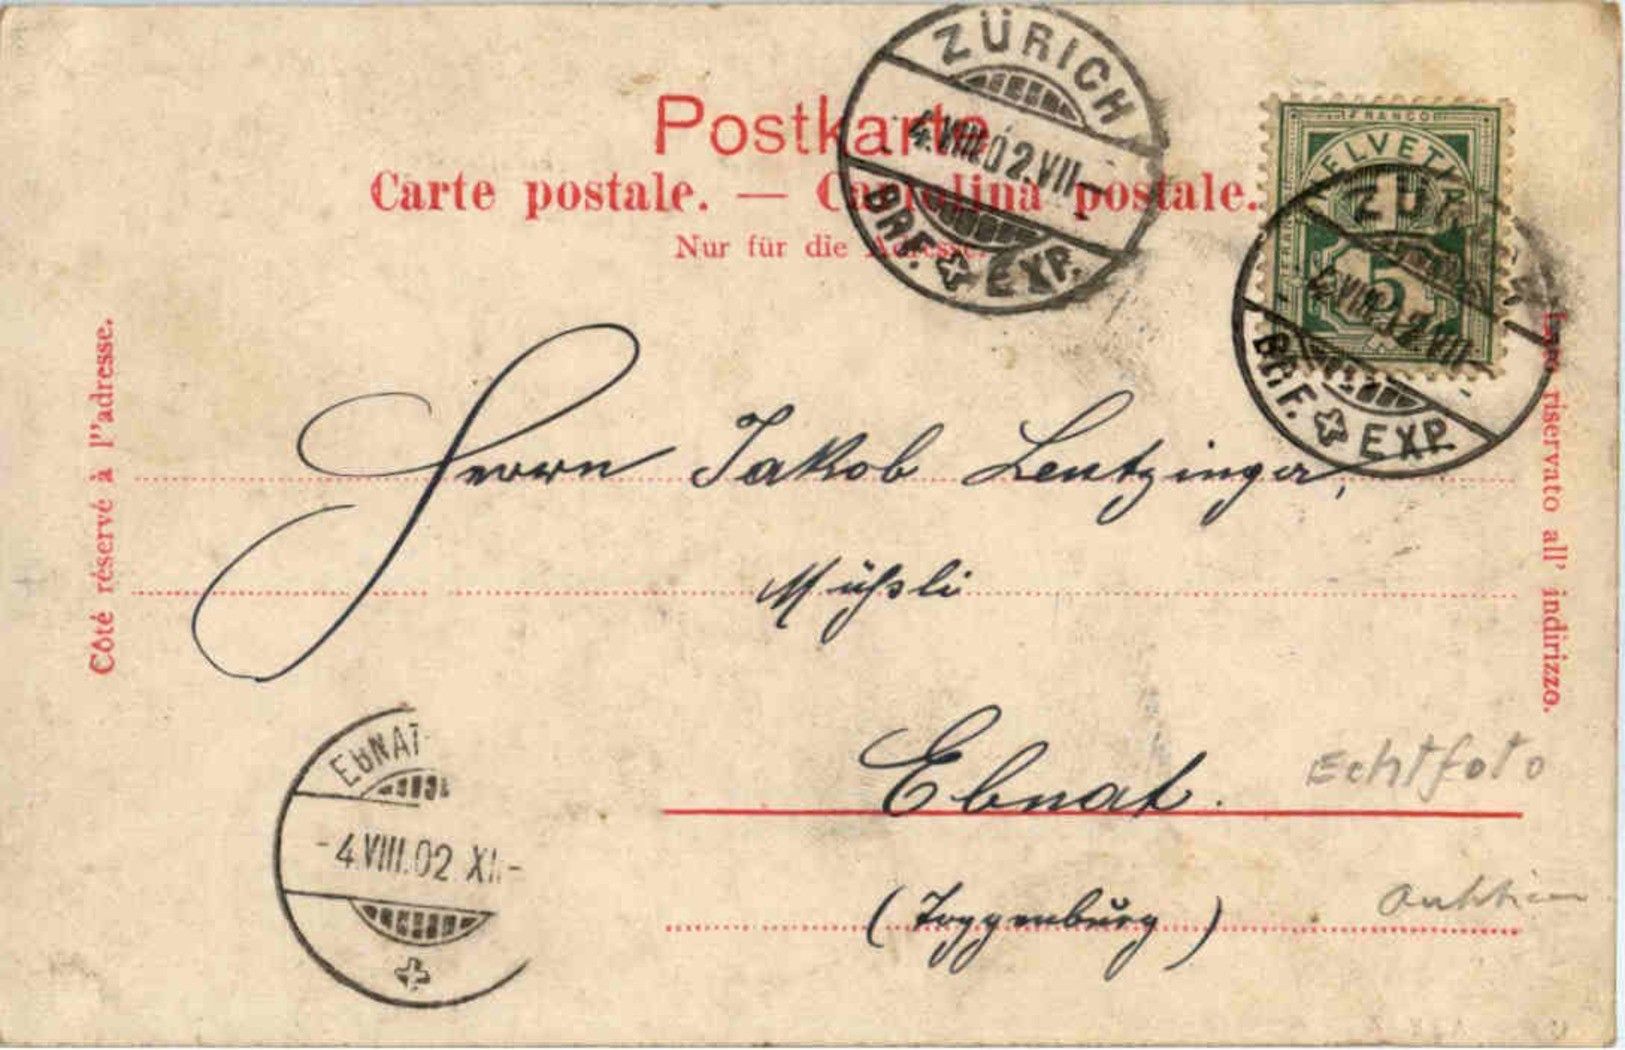 ZÜRICH
4.VIII.02.VII-
BRF. EXP.
Postkarte
Carte postale. — Cartolina postale.
Nur für die Adresse.
FRANCO
HELVETIA
5
BRF. EXP.
Côté réservé à l'’adresse.
Lato riservato all' indirizzo.
Herrn Jakob Leutzinger,
Mühsli
Ebnat.
(Toggenburg)
EBNAT
-4.VIII.02.XI-
Echtfoto